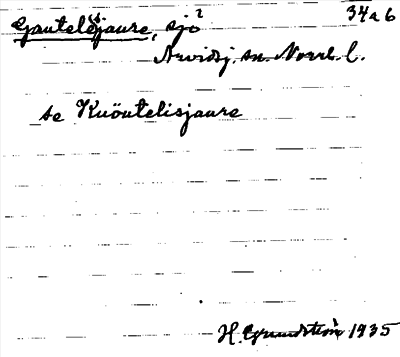 34a6
Gautelisjaure, sjö
Arvidsj. sn. Norrl. l.
se Kuöutelisjaure
H. Grundström 1935